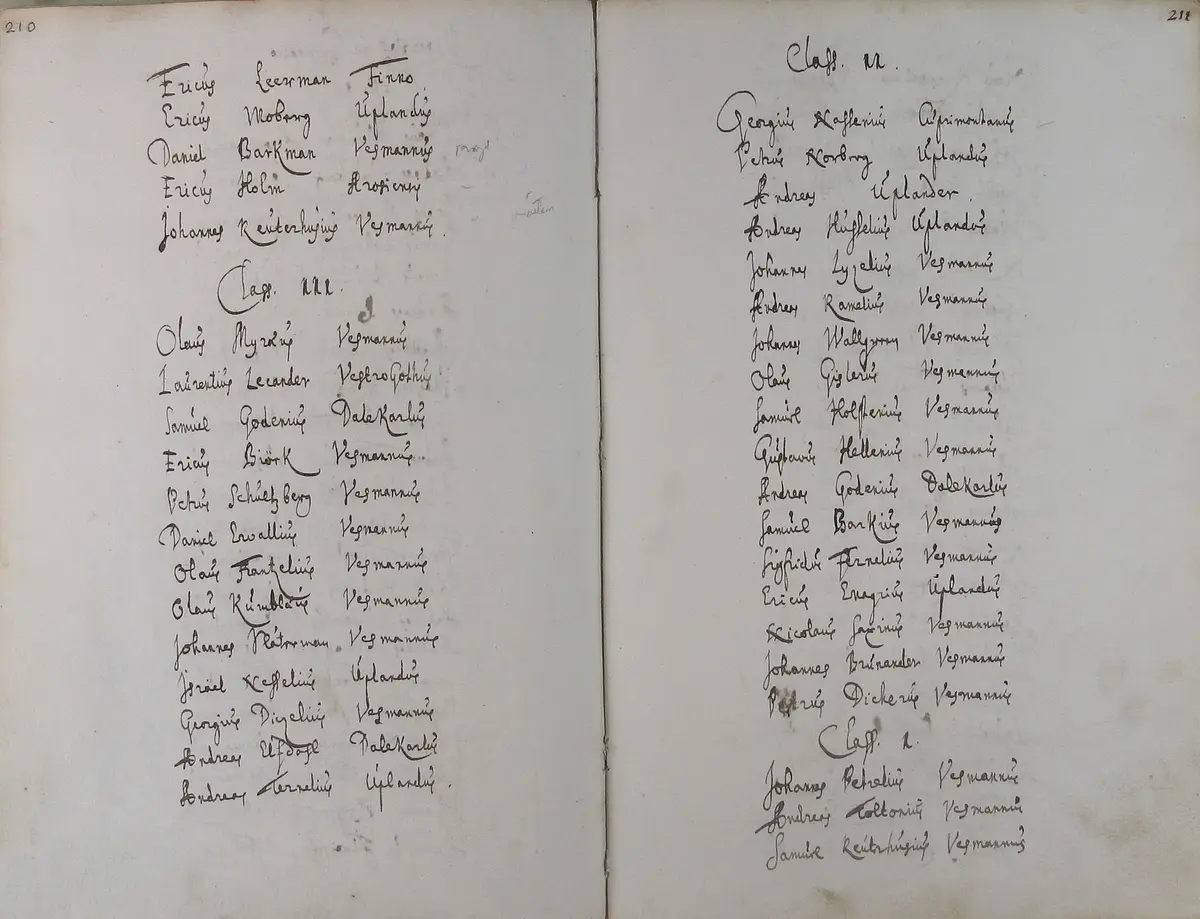 210
Ericus Leerman Finno.
Ericus Moberg Uplandus
Daniel Barkman Vesmannus
Ericus Holm Arosiensis
Johannes Reuterhusius Vesmannus.
Class. III.
Olaus Vesmannus
Laurentius Lecander VestroGothus
Samuel Godenius DaleKarlus
Ericus Biörk Vesmannus.
Petrus Schultzberg Vesmannus
Daniel Ervallius Vesmannus
Olaus Frantzelius Vesmannus
Olaus Kumblæus Vesmannus
Johannes Vesmannus
Israel Nesselius Uplandus
Georgius Digelius Vesmannus
Andreas Ufdahl DaleKarlus
Andreas Ternelius Uplandus.
211
Class. II.
Georgius Nassenius Cuprimontanus
Petrus Norberg Uplandus
Andreas Uplander.
Andreas Husselius Uplandus
Johannes Lyzelius Vesmannus
Andreas Ramelius Vesmannus
Johannes Wallgren Vesmannus
Olaus Gislerus Vesmannus
Samuel Holstenius Vesmannus
Gustavus Hellenius Vesmannus
Andreas Godenius DaleKarlus
Samuel Barkius Vesmannus
Sigfridus Fernelius Vesmannus
Ericus Enagrius Uplandus
Nicolaus Vesmannus
Johannes Brunander Vesmannus
Petrus Dickerus Vesmannus
Class. I.
Johannes Petrelius Vesmannus
Andreas Toltonius Vesmannus
Samuel Reuterhusius Vesmannus